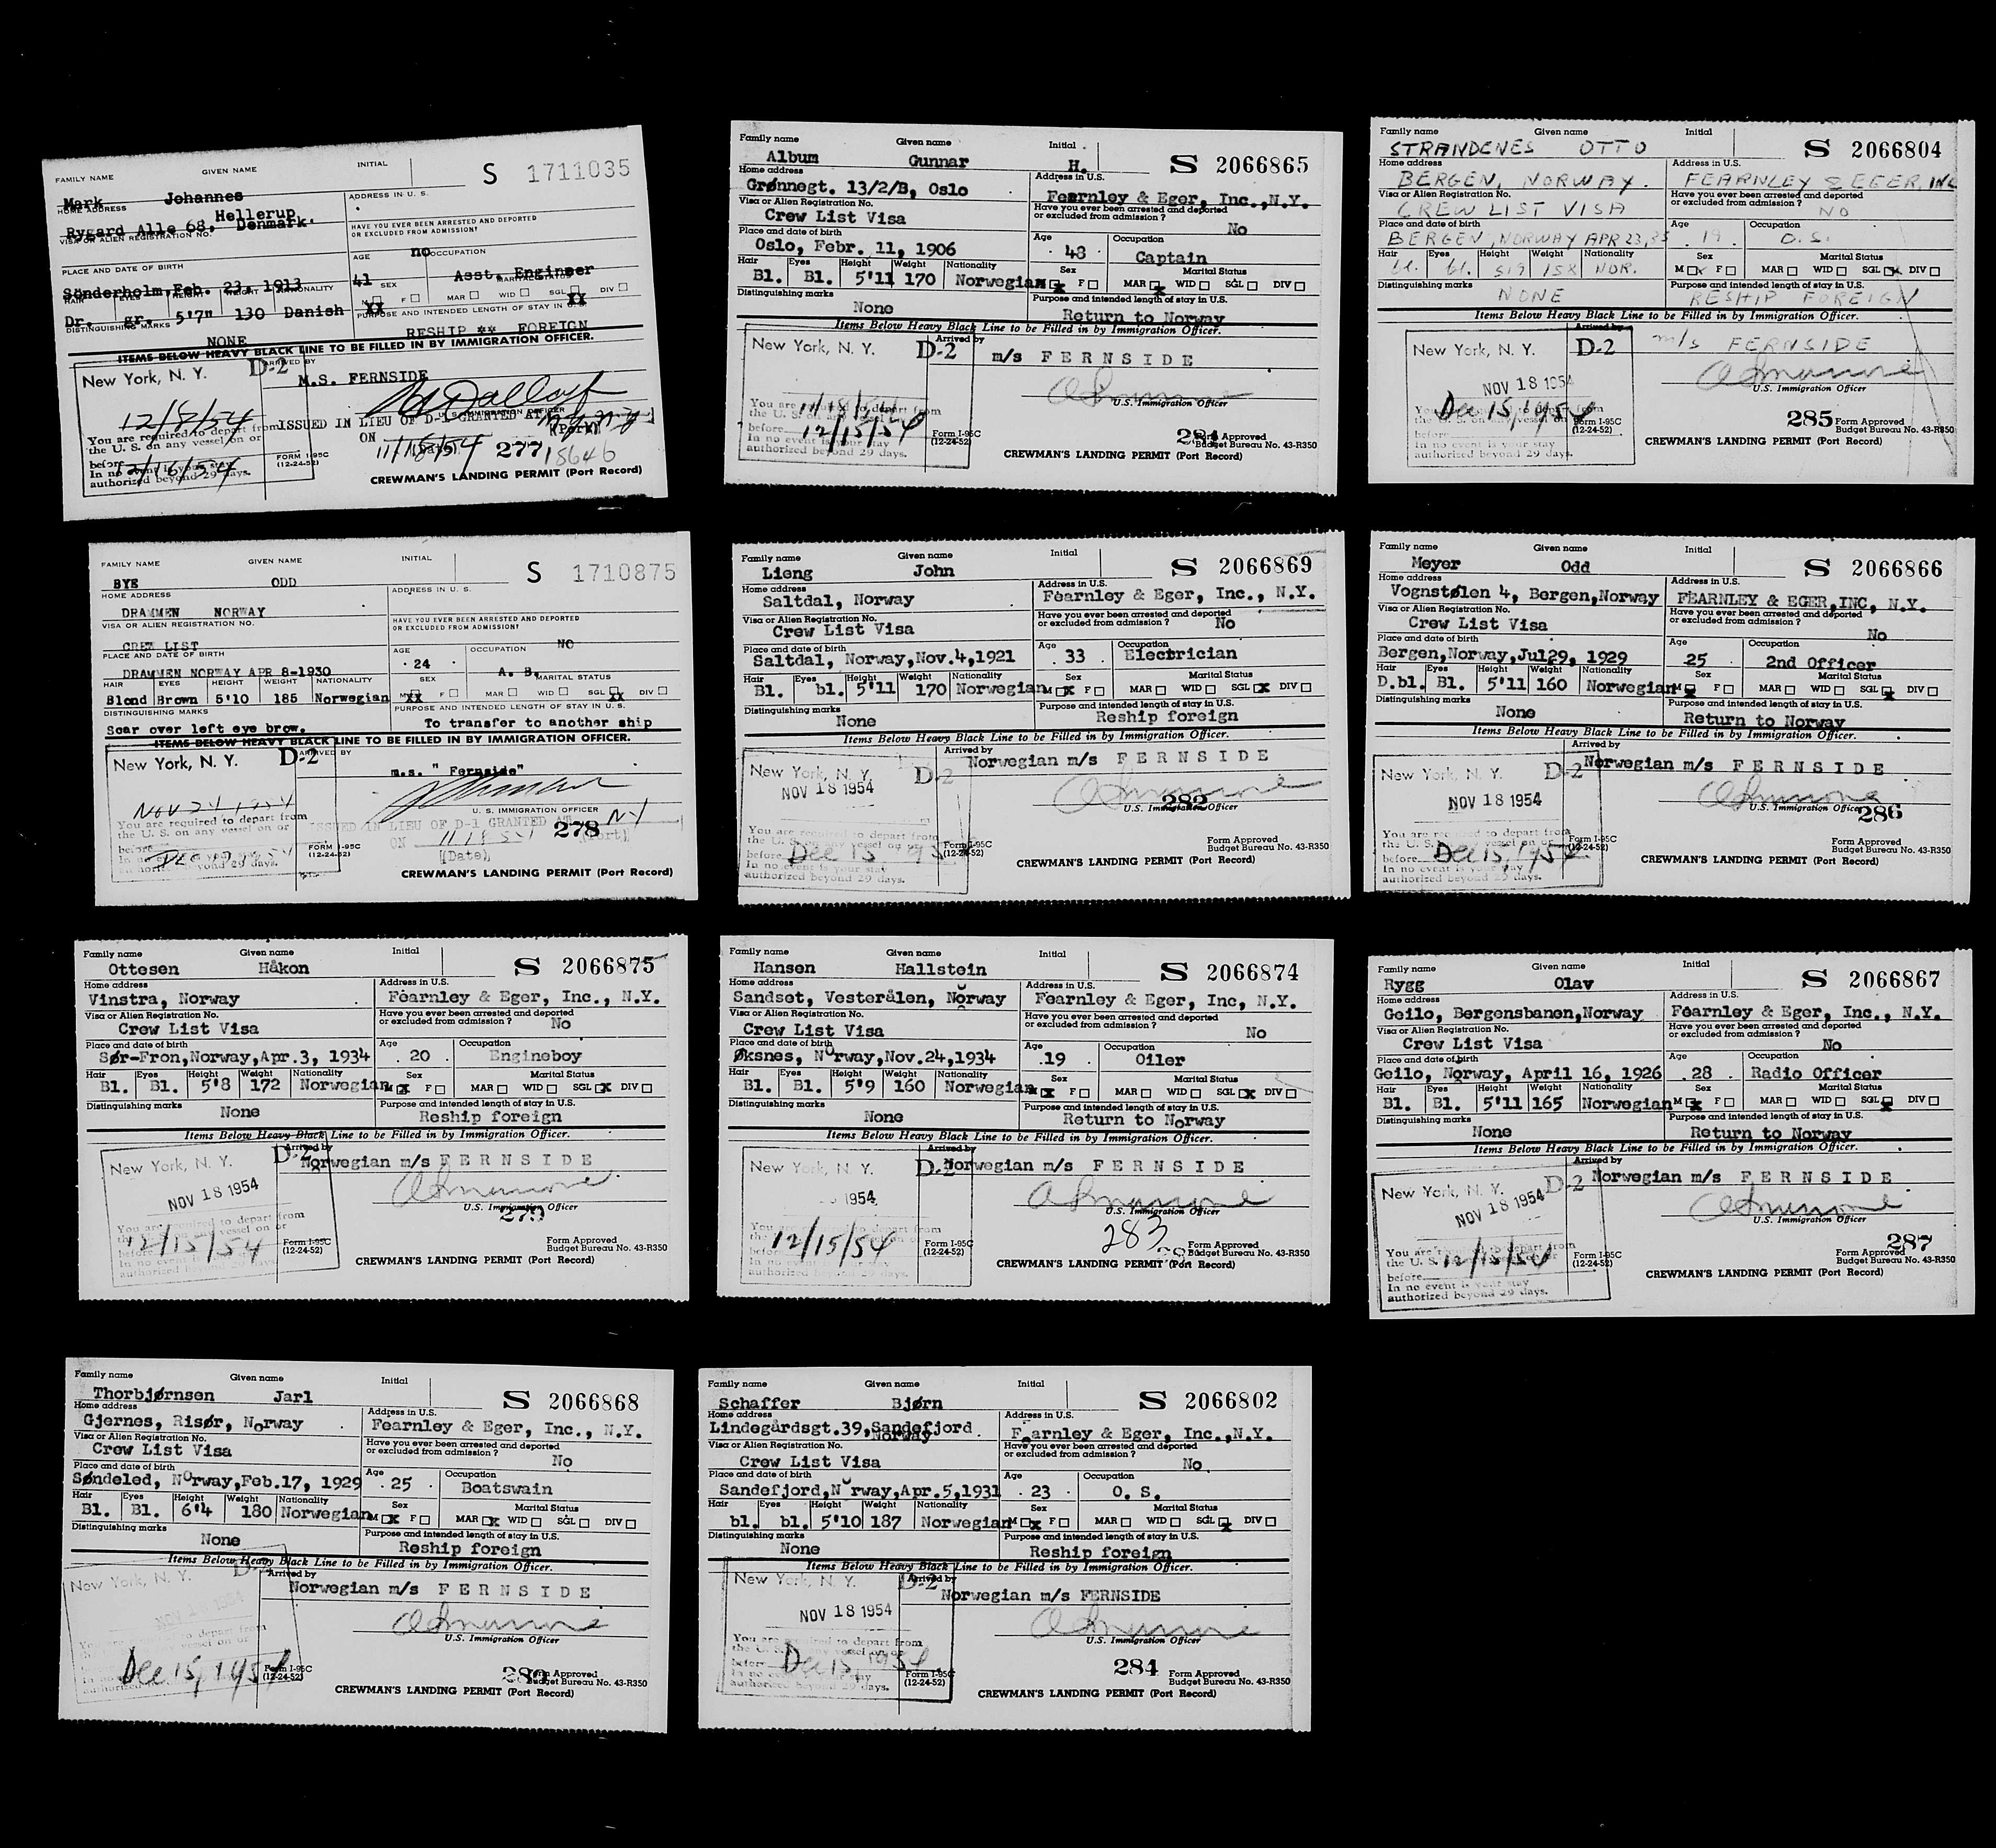 FAMILY NAME GIVEN NAME INITIAL S 1711035
Mark Johannes
HOME ADDRESS ADDRESS IN U. S.
Hellerup
Rygard Alle 68, Denmark.
VISA OR ALIEN REGISTRATION NO. HAVE YOU EVER BEEN ARRESTED AND DEPORTED
OR EXCLUDED FROM ADMISSION?
no
PLACE AND DATE OF BIRTH AGE OCCUPATION
Sönderholm, Feb. 23, 1913 41 Asst. Engineer
HAIR EYES HEIGHT WEIGHT NATIONALITY SEX MARITAL STATUS
Dr. gr. 5'7" 130 Danish M XX F MAR WID SGL XX DIV
DISTINGUISHING MARKS PURPOSE AND INTENDED LENGTH OF STAY IN U.S.
NONE RESHIP ** FOREIGN
ITEMS BELOW HEAVY BLACK LINE TO BE FILLED IN BY IMMIGRATION OFFICER.
New York, N. Y. D-2 ARRIVED BY
M.S. FERNSIDE
12/8/54
U. S. IMMIGRATION OFFICER
You are required to depart from
the U. S. on any vessel on or
before 12/16/54
In no event is your stay
authorized beyond 29 days.
ISSUED IN LIEU OF D-1 GRANTED AT
(Port)
ON 11/18/54
(Date)
277
18646
FORM I-95C
(12-24-52)
CREWMAN'S LANDING PERMIT (Port Record)
Family name Given name Initial S 2066865
Album Gunnar H.
Home address Address in U.S.
Grønnegt. 13/2/B, Oslo Fearnley & Eger, Inc.,N.Y.
Visa or Alien Registration No. Have you ever been arrested and deported
or excluded from admission ?
Crew List Visa No
Place and date of birth Age Occupation
Oslo, Febr. 11, 1906 48 Captain
Hair Eyes Height Weight Nationality Sex Marital Status
Bl. Bl. 5'11 170 Norwegian M x F MAR x WID SGL DIV
Distinguishing marks Purpose and intended length of stay in U.S.
None Return to Norway
Items Below Heavy Black Line to be Filled in by Immigration Officer.
New York, N. Y. D-2 Arrived by
m/s FERNSIDE
U.S. Immigration Officer
11/18/54
You are required to depart from
the U. S. on any vessel on or
before 12/15/54
In no event is your stay
authorized beyond 29 days.
Form I-95C
(12-24-52)
Form Approved
Budget Bureau No. 43-R350
CREWMAN'S LANDING PERMIT (Port Record)
Family name Given name Initial S 2066804
STRANDENES OTTO
Home address Address in U.S.
BERGEN, NORWAY. FEARNLEY & EGER, INC
Visa or Alien Registration No. Have you ever been arrested and deported
or excluded from admission ?
CREW LIST VISA NO
Place and date of birth Age Occupation
BERGEN, NORWAY APR 23, 35 19 O.S.
Hair Eyes Height Weight Nationality Sex Marital Status
bl. bl. 5'9 158 NOR. M x F MAR WID SGL x DIV
Distinguishing marks Purpose and intended length of stay in U.S.
NONE RESHIP FOREIGN
Items Below Heavy Black Line to be Filled in by Immigration Officer.
New York, N. Y. D-2 Arrived by
m/s FERNSIDE
NOV 18 1954
U.S. Immigration Officer
You are required to depart from
the U. S. on any vessel on or
before Dec 15, 1954
In no event is your stay
authorized beyond 29 days.
285
Form I-95C
(12-24-52)
Form Approved
Budget Bureau No. 43-R350
CREWMAN'S LANDING PERMIT (Port Record)
FAMILY NAME GIVEN NAME INITIAL S 1710875
BYE ODD
HOME ADDRESS ADDRESS IN U. S.
DRAMMEN NORWAY
VISA OR ALIEN REGISTRATION NO. HAVE YOU EVER BEEN ARRESTED AND DEPORTED
OR EXCLUDED FROM ADMISSION?
CREW LIST NO
PLACE AND DATE OF BIRTH AGE OCCUPATION
DRAMMEN NORWAY APR 8-1930 24 A. B.
HAIR EYES HEIGHT WEIGHT NATIONALITY SEX MARITAL STATUS
Blond Brown 5'10 185 Norwegian M XX F MAR WID SGL XX DIV
DISTINGUISHING MARKS PURPOSE AND INTENDED LENGTH OF STAY IN U. S.
Scar over left eye brow. To transfer to another ship
ITEMS BELOW HEAVY BLACK LINE TO BE FILLED IN BY IMMIGRATION OFFICER.
New York, N. Y. D-2 ARRIVED BY
m.s. " Fernside"
Nov 24 1954
U. S. IMMIGRATION OFFICER
You are required to depart from
the U. S. on any vessel on or
before
In no event is your stay
authorized beyond 29 days.
ISSUED IN LIEU OF D-1 GRANTED AT NY
(Port)
ON
(Date)
278
FORM I-95C
(12-24-52)
CREWMAN'S LANDING PERMIT (Port Record)
Family name Given name Initial S 2066869
Lieng John
Home address Address in U.S.
Saltdal, Norway Fearnley & Eger, Inc., N.Y.
Visa or Alien Registration No. Have you ever been arrested and deported
or excluded from admission ?
Crew List Visa No
Place and date of birth Age Occupation
Saltdal, Norway,Nov.4,1921 33 Electrician
Hair Eyes Height Weight Nationality Sex Marital Status
Bl. bl. 5'11 170 Norwegian M x F MAR WID SGL x DIV
Distinguishing marks Purpose and intended length of stay in U.S.
None Reship foreign
Items Below Heavy Black Line to be Filled in by Immigration Officer.
New York, N. Y. D-2 Arrived by
Norwegian m/s FERNSIDE
NOV 18 1954
282
U.S. Immigration Officer
You are required to depart from
the U. S. on any vessel on or
before Dec 15
In no event is your stay
authorized beyond 29 days.
Form I-95C
(12-24-52)
Form Approved
Budget Bureau No. 43-R350
CREWMAN'S LANDING PERMIT (Port Record)
Family name Given name Initial S 2066866
Meyer Odd
Home address Address in U.S.
Vognstølen 4, Bergen,Norway FEARNLEY & EGER,INC, N.Y.
Visa or Alien Registration No. Have you ever been arrested and deported
or excluded from admission ?
Crew List Visa No
Place and date of birth Age Occupation
Bergen,Norway,Jul29, 1929 25 2nd Officer
Hair Eyes Height Weight Nationality Sex Marital Status
D.bl. Bl. 5'11 160 Norwegian M x F MAR WID SGL x DIV
Distinguishing marks Purpose and intended length of stay in U.S.
None Return to Norway
Items Below Heavy Black Line to be Filled in by Immigration Officer.
New York, N. Y. D-2 Arrived by
Norwegian m/s FERNSIDE
NOV 18 1954
U.S. Immigration Officer
286
You are required to depart from
the U. S. on any vessel on or
before Dec 15, 1954
In no event is your stay
authorized beyond 29 days.
Form I-95C
(12-24-52)
Form Approved
Budget Bureau No. 43-R350
CREWMAN'S LANDING PERMIT (Port Record)
Family name Given name Initial S 2066875
Ottesen Håkon
Home address Address in U.S.
Vinstra, Norway Fearnley & Eger, Inc., N.Y.
Visa or Alien Registration No. Have you ever been arrested and deported
or excluded from admission ?
Crew List Visa No
Place and date of birth Age Occupation
Sør-Fron,Norway,Apr.3, 1934 20 Engineboy
Hair Eyes Height Weight Nationality Sex Marital Status
Bl. Bl. 5'8 172 Norwegian M x F MAR WID SGL x DIV
Distinguishing marks Purpose and intended length of stay in U.S.
None Reship foreign
Items Below Heavy Black Line to be Filled in by Immigration Officer.
New York, N. Y. D-2 Arrived by
Norwegian m/s FERNSIDE
NOV 18 1954
U.S. Immigration Officer
279
You are required to depart from
the U. S. on any vessel on or
before 12/15/54
In no event is your stay
authorized beyond 29 days.
Form I-95C
(12-24-52)
Form Approved
Budget Bureau No. 43-R350
CREWMAN'S LANDING PERMIT (Port Record)
Family name Given name Initial S 2066874
Hansen Hallstein
Home address Address in U.S.
Sandset, Vesterålen, Norway Fearnley & Eger, Inc, N.Y.
Visa or Alien Registration No. Have you ever been arrested and deported
or excluded from admission ?
Crew List Visa No
Place and date of birth Age Occupation
Øksnes, Norway,Nov.24,1934 19 Oiler
Hair Eyes Height Weight Nationality Sex Marital Status
Bl. Bl. 5'9 160 Norwegian M x F MAR WID SGL x DIV
Distinguishing marks Purpose and intended length of stay in U.S.
None Return to Norway
Items Below Heavy Black Line to be Filled in by Immigration Officer.
New York, N. Y. D-2 Arrived by
Norwegian m/s FERNSIDE
1954
U.S. Immigration Officer
283
You are required to depart from
the U. S. on any vessel on or
before 12/15/54
In no event is your stay
authorized beyond 29 days.
Form I-95C
(12-24-52)
Form Approved
Budget Bureau No. 43-R350
CREWMAN'S LANDING PERMIT (Port Record)
Family name Given name Initial S 2066867
Rygg Olav
Home address Address in U.S.
Geilo, Bergensbanen,Norway Fearnley & Eger, Inc., N.Y.
Visa or Alien Registration No. Have you ever been arrested and deported
or excluded from admission ?
Crew List Visa No
Place and date of birth Age Occupation
Geilo, Norway, April 16, 1926 28 Radio Officer
Hair Eyes Height Weight Nationality Sex Marital Status
Bl. Bl. 5'11 165 Norwegian M x F MAR WID SGL x DIV
Distinguishing marks Purpose and intended length of stay in U.S.
None Return to Norway
Items Below Heavy Black Line to be Filled in by Immigration Officer.
New York, N. Y. D-2 Arrived by
Norwegian m/s FERNSIDE
NOV 18 1954
U.S. Immigration Officer
287
You are required to depart from
the U. S. 12/15/54
before
In no event is your stay
authorized beyond 29 days.
Form I-95C
(12-24-52)
Form Approved
Budget Bureau No. 43-R350
CREWMAN'S LANDING PERMIT (Port Record)
Family name Given name Initial S 2066868
Thorbjørnsen Jarl
Home address Address in U.S.
Gjernes, Risør, Norway Fearnley & Eger, Inc., N.Y.
Visa or Alien Registration No. Have you ever been arrested and deported
or excluded from admission ?
Crew List Visa No
Place and date of birth Age Occupation
Søndeled, Norway,Feb.17, 1929 25 Boatswain
Hair Eyes Height Weight Nationality Sex Marital Status
Bl. Bl. 6'4 180 Norwegian M x F MAR x WID SGL DIV
Distinguishing marks Purpose and intended length of stay in U.S.
None Reship foreign
Items Below Heavy Black Line to be Filled in by Immigration Officer.
New York, N. Y. D-2 Arrived by
Norwegian m/s FERNSIDE
NOV 18 1954
U.S. Immigration Officer
You are required to depart from
the U. S. on any vessel on or
Dec 15, 1954
Form I-95C
(12-24-52)
Form Approved
Budget Bureau No. 43-R350
CREWMAN'S LANDING PERMIT (Port Record)
Family name Given name Initial S 2066802
Schaffer Bjørn
Home address Address in U.S.
Lindegårdsgt.39,Sandefjord Fearnley & Eger, Inc.,N.Y.
Norway
Visa or Alien Registration No. Have you ever been arrested and deported
or excluded from admission ?
Crew List Visa No
Place and date of birth Age Occupation
Sandefjord,Norway,Apr.5,1931 23 O. S.
Hair Eyes Height Weight Nationality Sex Marital Status
bl. bl. 5'10 187 Norwegian M x F MAR WID SGL x DIV
Distinguishing marks Purpose and intended length of stay in U.S.
None Reship foreign
Items Below Heavy Black Line to be Filled in by Immigration Officer.
New York, N. Y. D-2 Arrived by
Norwegian m/s FERNSIDE
NOV 18 1954
U.S. Immigration Officer
You are required to depart from
the U. S. on any vessel on or
before Dec 15, 1954
In no event is your stay
authorized beyond 29 days.
284
Form I-95C
(12-24-52)
Form Approved
Budget Bureau No. 43-R350
CREWMAN'S LANDING PERMIT (Port Record)